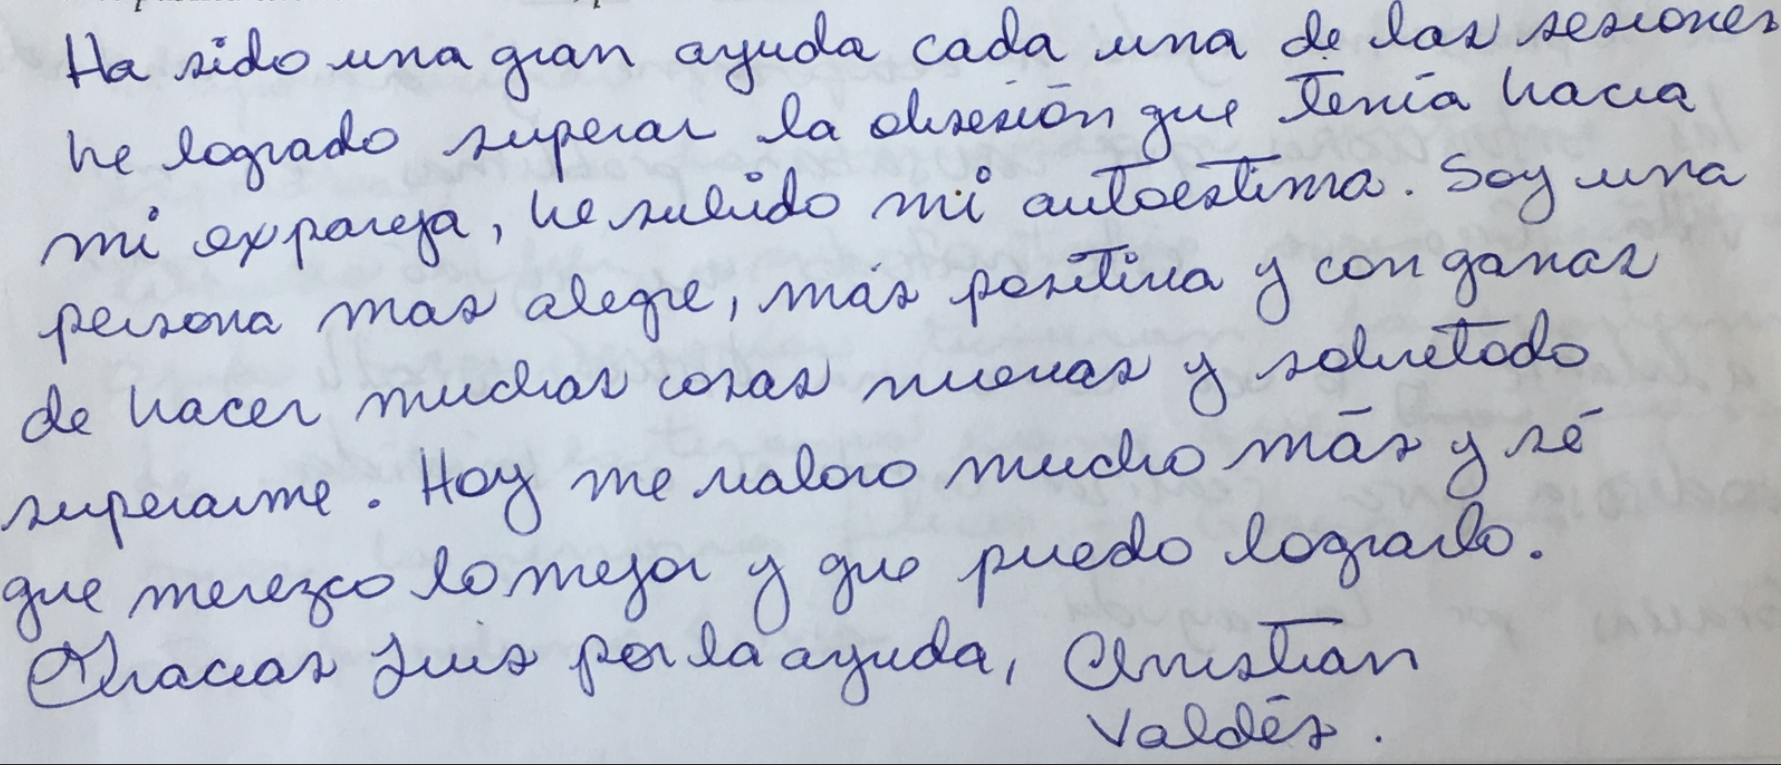 Ha sido una gran ayuda cada una de las sesiones
he logrado superar la obsesión que tenía hacia
mi expareja, he subido mi autoestima. Soy una
persona mas alegre, más positiva y con ganas
de hacer muchas cosas nuevas y sobretodo
superarme. Hoy me valoro mucho más y sé
que merezco lo mejor y que puedo lograrlo.
Gracias Luis por la ayuda, Christian
Valdés.